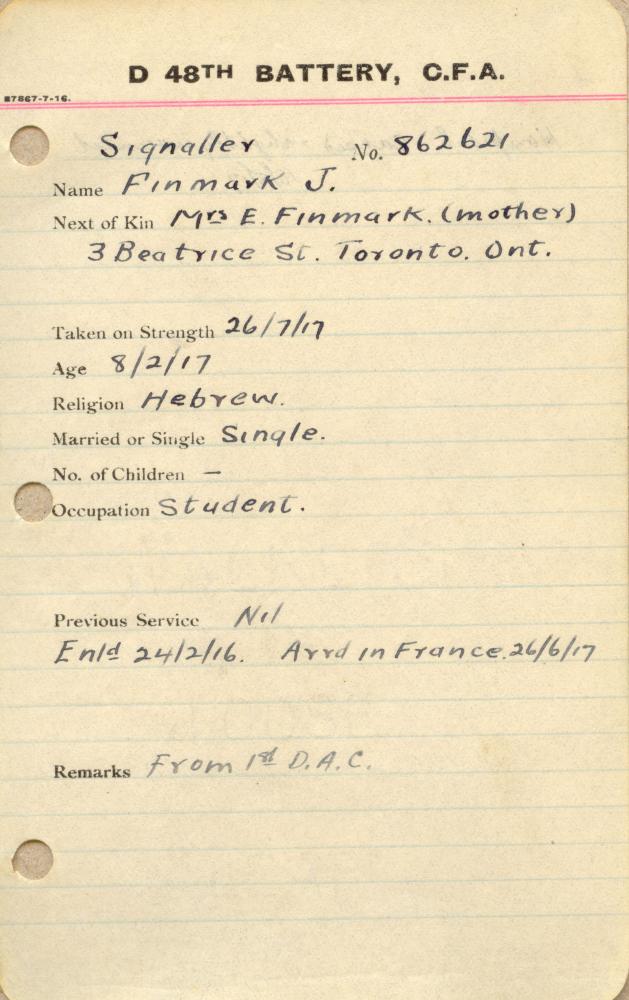 D 48TH BATTERY, C.F.A.
87867-7-16.
Signaller No. 862621
Name Finmark J.
Next of Kin Mrs E. Finmark. (mother)
3 Beatrice St. Toronto. Ont.
Taken on Strength 26/7/17
Age 8/2/17
Religion Hebrew.
Married or Single Single.
No. of Children —
Occupation Student.
Previous Service Nil
Enld 24/2/16. Arrd in France. 26/6/17
Remarks From 1st D.A.C.